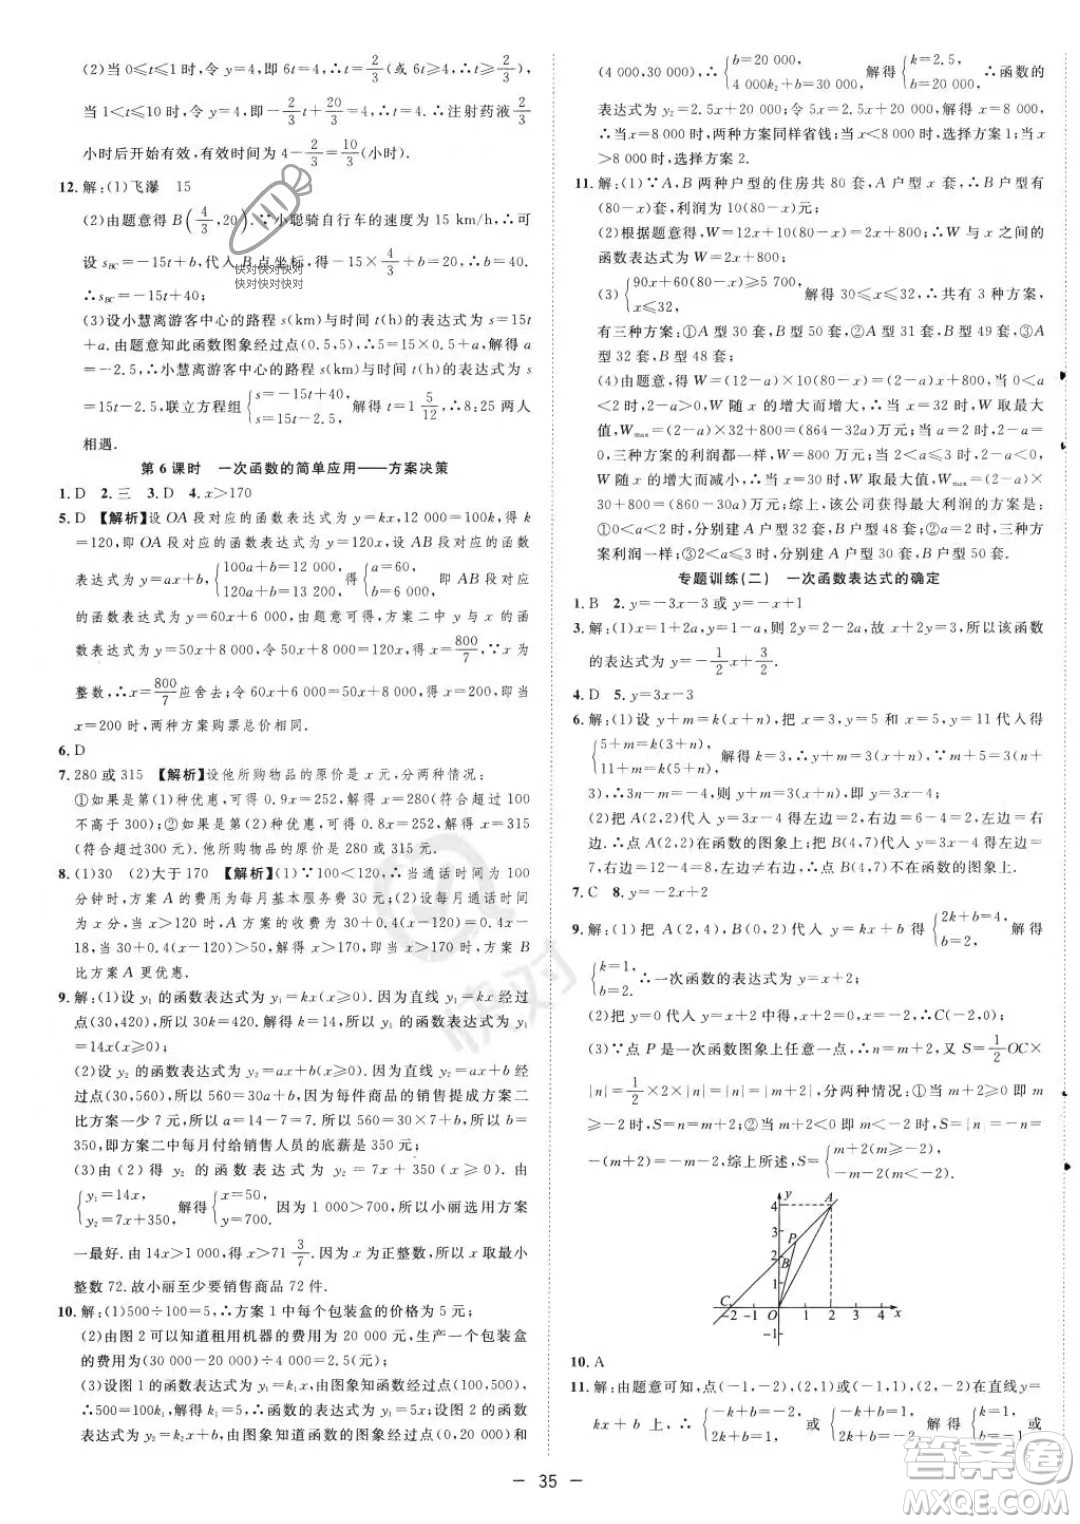 (2)当 0≤t≤1 时,令 y=4,即 6t=4,∴t=2/3(或 6t≥4,t≥2/3),
当 1<t≤10 时,令 y=4,即-2/3t+20/3=4,∴t=4,∴注射药液2/3
小时后开始有效,有效时间为 4-2/3=10/3(小时).
12. 解:(1)飞瀑 15
(2)由题意得 B(4/3,20).∵小聪骑自行车的速度为 15 km/h,∴可
设 s_BC=-15t+b,代入 B 点坐标,得-15×4/3+b=20,∴b=40.
∴s_BC=-15t+40;
(3)设小慧离游客中心的路程 s(km)与时间 t(h)的表达式为 s=15t
+a.由题意知此函数图象经过点(0.5,5),∴5=15×0.5+a,∴a
=-2.5,∴小慧离游客中心的路程 s(km)与时间 t(h)的表达式为 s
=15t-2.5,联立方程组{s=-15t+40, s=15t-2.5,解得 t=1 5/12,∴8:25 两人
相遇.
第 6 课时 一次函数的简单应用——方案决策
1. D 2. 三 3. D 4. x>170
5. D 【解析】设 OA 段对应的函数表达式为 y=kx,12 000=100k,得 k
=120,即 OA 段对应的函数表达式为 y=120x,设 AB 段对应的函数
表达式为 y=ax+b,{100a+b=12 000, 120a+b=13 200,得{a=60, b=6 000,即 AB 段对应的
函数表达式为 y=60x+6 000,方案二中 y 与 x 的函数关系式为 y=
50x+8 000,令 120x=50x+8 000,得 x=800/7,∵x 为
整数,∴x=800/7应舍去;令 60x+6 000=50x+8 000,得 x=200,即当
x=200 时,两种方案购票总价相同.
6. D
7. 280 或 315 【解析】设他所购物品的原价是 x 元,分两种情况:
①如果是第(1)种优惠,可得 0.9x=252,解得 x=280(符合超过 100
不高于 300);②如果是第(2)种优惠,可得 0.8x=252,解得 x=315
(符合超过300元).他所购物品的原价为 280 或 315 元.
8. (1)30 (2)大于 170 【解析】(1)∵100<120,∴当通话时间为 100
分钟时,方案 A 的费用为每月基本服务费 30 元;(2)设每月通话时间
为 x 分钟,当 x>120 时,A 方案的收费为 30+0.4(x-120)=0.4x-
18,当 30+0.4(x-120)>50,解得 x>170,即 x>170 时,方案 B
比方案 A 更优惠.
9. 解:(1)设 y₁ 的函数表达式为 y₁=kx(x≥0).因为直线 y₁=kx 经过
点(30,420),所以 30k=420.解得 k=14,所以 y₁ 的函数表达式为 y₁
=14x(x≥0);
(2)设 y₂ 的函数表达式为 y₂=ax+b(x≥0),它经过点(30,560),
所以 560=30a+b,因为每件商品的销售提成方案二
比方案一少 7 元,所以 a=14-7=7.所以 560=30×7+b,所以 b=
350,即方案二中每月付给销售人员的底薪是 350 元;
(3)由(2)得 y₂ 的函数表达式为 y₂=7x+350(x≥0).由
{y₁=14x, y₂=7x+350,解得{x=50, y=700,所以当销售数量大于 50 时,小丽选用方案
一最好.由 14x>1 000,得 x>71 3/7,因为 x 为正整数,所以 x 取最小
整数 72.故小丽至少要销售商品 72 件.
10. 解:(1)500÷100=5,∴方案 1 中每个包装盒的价格为 5 元;
(2)由图 2 可以知道租用机器的费用为 20 000 元,生产一个包装盒
的费用为(30 000-20 000)÷4 000=2.5(元);
(3)设图 1 的函数表达式为 y₁=k₁x,由图象知函数经过点(100,
500),∴500=100k₁,解得 k₁=5,∴函数的表达式为 y₁=5x;设图 2 的函数
表达式为 y₂=k₂x+b,由图象知函数的图象经过点(0,20 000)和
(4 000,30 000),∴{b=20 000, 4 000k₂+b=30 000,解得{k=2.5, b=20 000,∴函数的
表达式为 y₂=2.5x+20 000;令 5x=2.5x+20 000,解得 x=8 000,
∴当 x=8 000 时,两种方案同样省钱;当 x<8 000 时,选择方案 1;
当 x>8 000 时,选择方案 2.
11. 解:(1)∵A,B 两种户型的住房共 80 套,A 户型 x 套,∴B 户型有
(80-x)套,利润为 10(80-x)万元;
(2)根据题意得 W=12x+10(80-x)=2x+800,∴W 与 x 之间的
函数表达式为 W=2x+800;
(3){90x+60(80-x)≥5 700, x≤32,解得 30≤x≤32,∴共有 3 种方案,
有三种方案:①A 型 30 套,B 型 50 套;②A 型 31 套,B 型 49 套;③A
型 32 套,B 型 48 套;
(4)由题意,得 W=(12-a)x+10(80-x)=(2-a)x+800,当 0<a
<2 时,2-a>0,W 随 x 的增大而增大,∴当 x=32 时,W 取最大
值,W_max=(2-a)×32+800=(864-32a)万元;当 a=2 时,三种方
案的利润都一样,W=800 万元;当 2<a≤3 时,2-a<0,W
随 x 的增大而减小,∴当 x=30 时,W 取最大值,W_max=(2-a)×
30+800=(860-30a)万元;综上,该公司获得最大利润的方案是:
①0<a<2 时,分别建 A 户型 32 套,B 户型 48 套;②a=2 时,三种方
案利润一样;③2<a≤3 时,分别建 A 户型 30 套,B 户型 50 套.
专题训练(二) 一次函数表达式的确定
1. B 2. y=-3x-3 或 y=-x+1
3. 解:(1)x=1+2a,y=1-a,则 2y=2-2a,故 x+2y=3,所以该函数
的表达式为 y=-1/2x+3/2.
4. D 5. y=3x-3
6. 解:(1)设 y+m=k(x+n),把 x=3,y=5 和 x=5,y=11 代入得
{5+m=k(3+n), 11+m=k(5+n),
3),∴y=3x-4;
(2)把 A(2,2)代入函数的表达式 y=3x-4 得左边=2,右边=6-4
=2,左边=右边,∴点 A(2,2)在函数的图象上;把 B(4,7)代入得左边
=7,右边=12-4=8,左边≠右边,∴点 B(4,7)不在函数的图象上.
7. C 8. y=-2x+2
9. 解:(1)把 A(2,4),B(0,2)代入 y=kx+b 得{2k+b=4, b=2,
{k=1, b=2.∴一次函数的表达式为 y=x+2;
(2)把 y=0 代入 y=x+2,得 x+2=0,解得 x=-2,∴C(-2,0);
(3)∵点 P 是一次函数图象上任意一点,∴n=m+2,又 S=1/2OC×
|n|=1/2×2×|n|=|n|=|m+2|,分两种情况:①当 m+2≥0 即 m
≥-2 时,S=|n|=m+2;②当 m+2<0 即 m<-2 时,S=|n|=
-(m+2)=-m-2,综上所述,S={m+2(m≥-2), -m-2(m<-2).
y
A
4
3
P
2
B
1
C
-2 -1 O 1 2 3 4 x
-1
10. A
11. 解:由题意可知,点(-1,-2),(2,1)或(-1,1),(2,-2)在直线 y=
kx+b 上,∴{-k+b=-2, 2k+b=1,或{-k+b=1, 2k+b=-2,解得{k=1, b=-1或
— 35 —
快对快对快对
快对快对快对
快对
答案圈
MXQE.COM